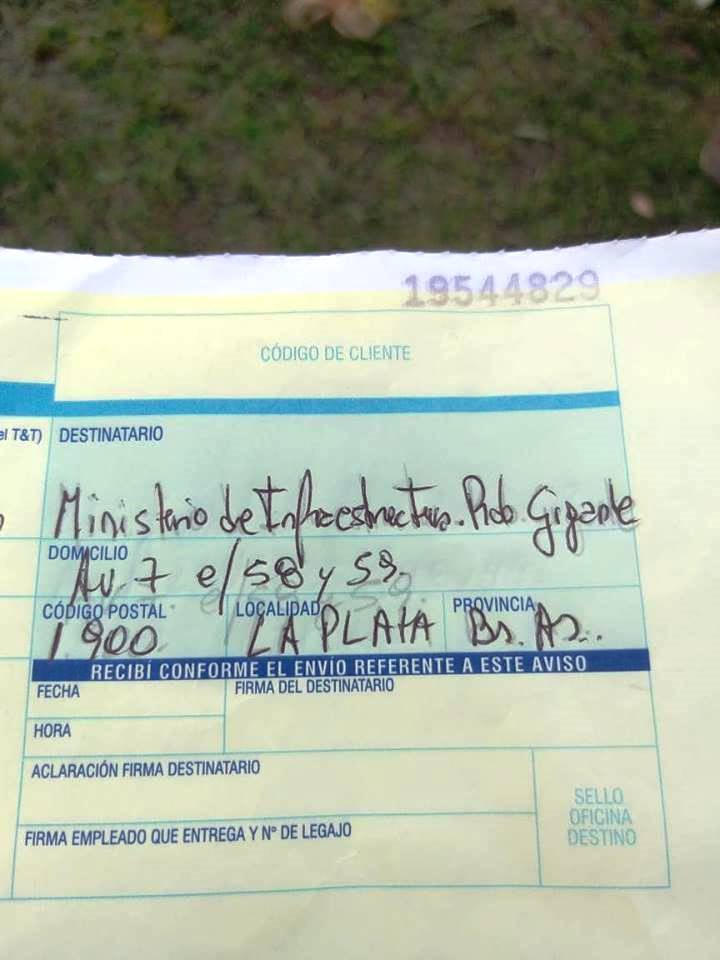 19544829
CÓDIGO DE CLIENTE
el T&T) DESTINATARIO
Ministerio de Infraestructura. Rob. Gigante
DOMICILIO
Av. 7 e/ 58 y 59.
CÓDIGO POSTAL LOCALIDAD PROVINCIA
1900 LA PLATA Bs. As.
RECIBÍ CONFORME EL ENVÍO REFERENTE A ESTE AVISO
FECHA FIRMA DEL DESTINATARIO
HORA
ACLARACIÓN FIRMA DESTINATARIO
SELLO
OFICINA
DESTINO
FIRMA EMPLEADO QUE ENTREGA Y Nº DE LEGAJO